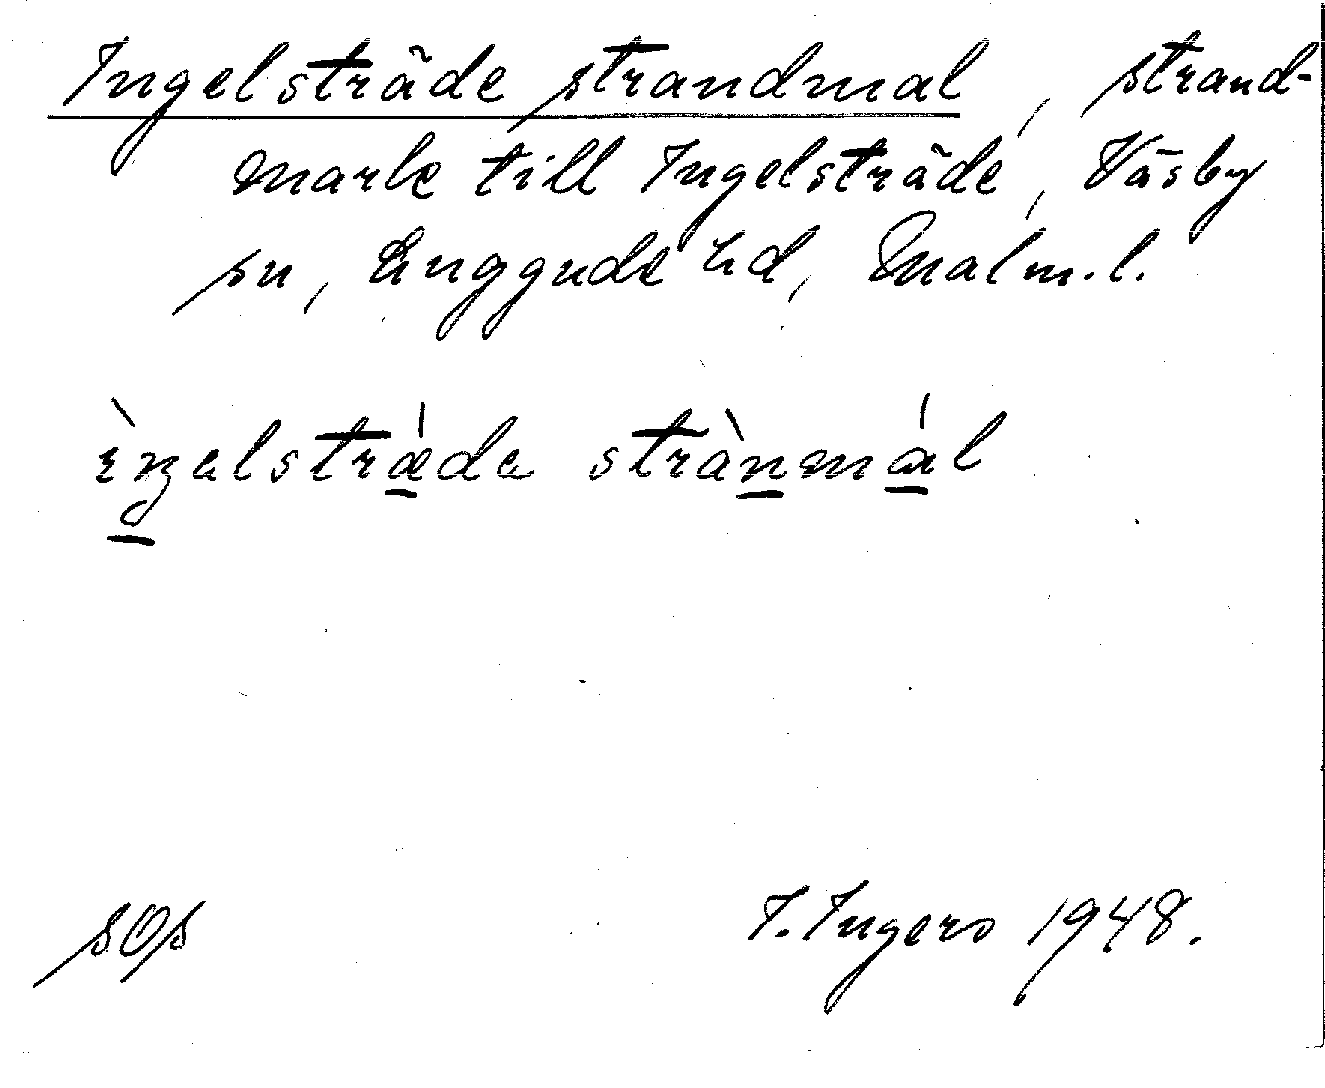 Ingelsträde strandmal, strand-
mark till Ingelsträde, Väsby
sn, Luggude hd, Malm. l.
ìŋəlstrǽdə strànmál
sOs
I. Ingers 1948.